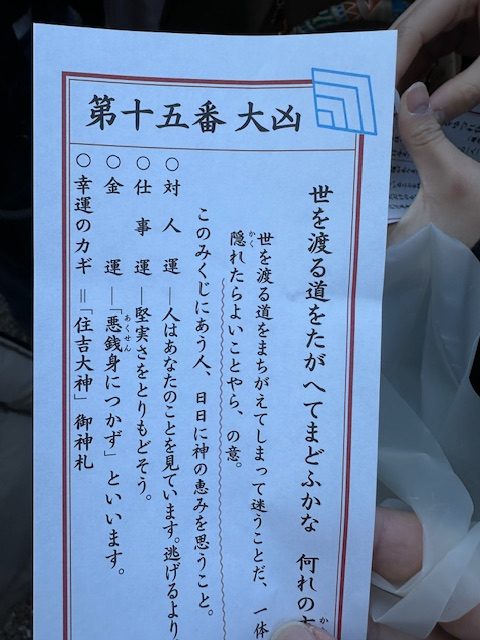 第十五番 大凶
世を渡る道をたがへてまどふかな 何れの
世を渡る道をまちがえてしまって迷うことだ、一体
隠れたらよいことやら、の意。
かく
このみくじにあう人、日日に神の恵みを思うこと。
○対人運―人はあなたのことを見ています。逃げるより
○仕事運―堅実さをとりもどそう。
○金運―「悪銭身につかず」といいます。
あくせん
○幸運のカギ＝「住吉大神」御神札